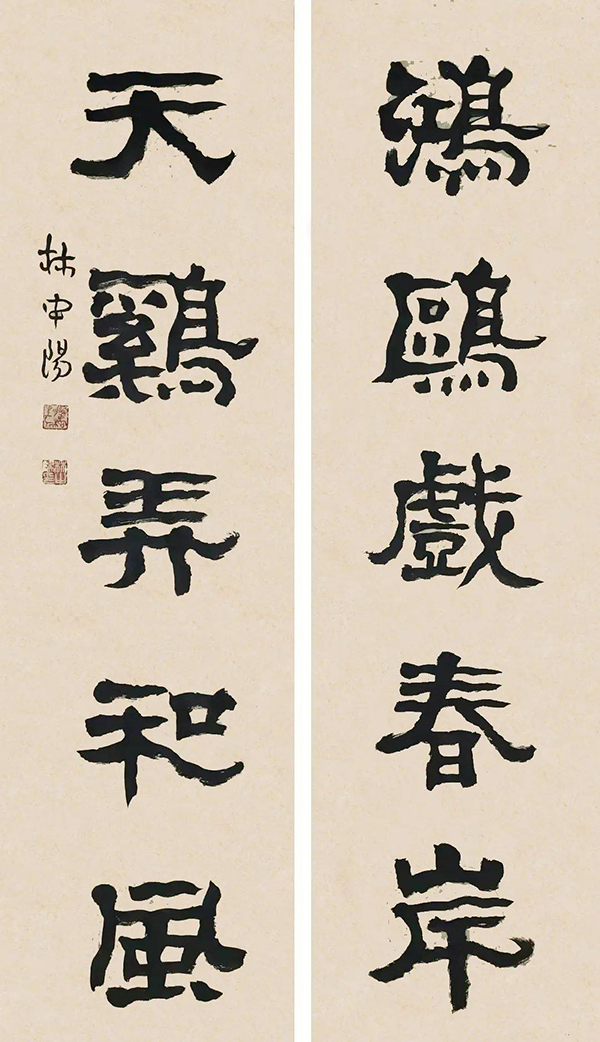 鴻鷗戲春岸
天鷄弄和風
林中陽